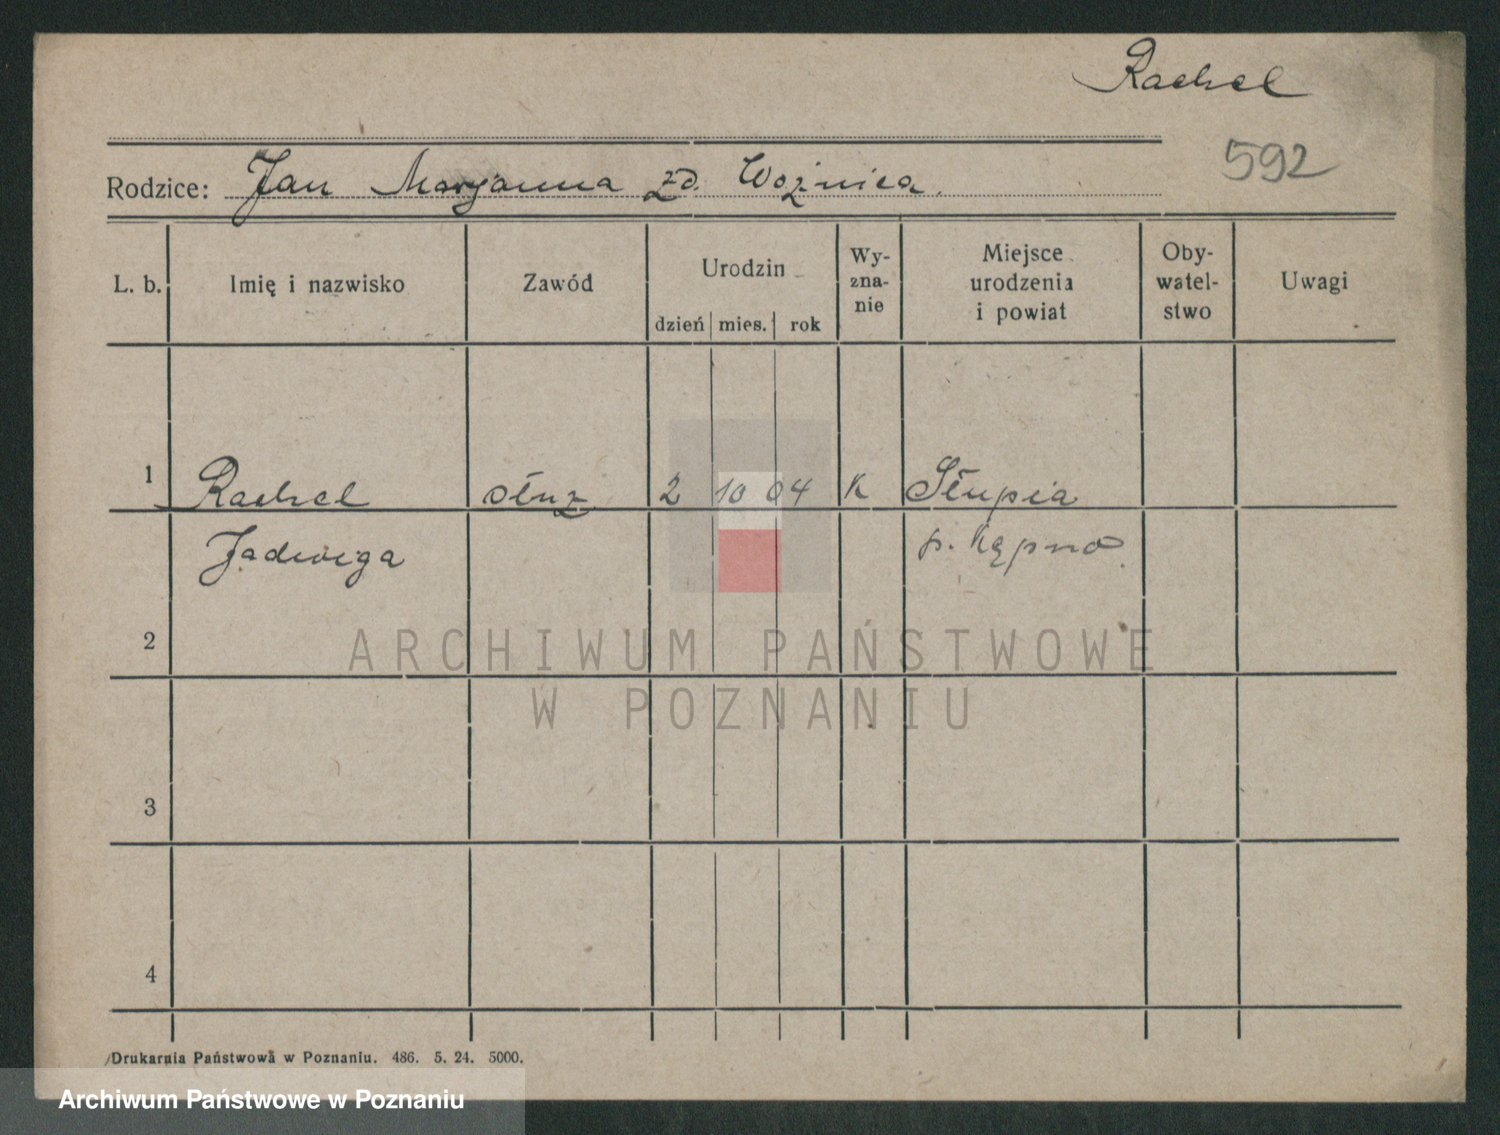 Rachel
592
Rodzice: Jan Maryanna zd. Woźnica.
L. b. Imię i nazwisko Zawód Urodzin dzień mies. rok Wy-zna-nie Miejsce urodzenia i powiat Oby-watel-stwo Uwagi
1 Rachel służ 2 10 04 K Słupia
Jadwiga p. Kępno
2
ARCHIWUM PAŃSTWOWE
W POZNANIU
3
4
Drukarnia Państwowa w Poznaniu. 486. 5. 24. 5000.
Archiwum Państwowe w Poznaniu